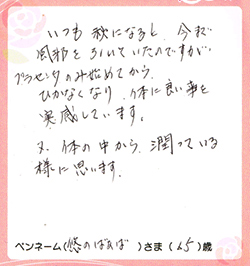 いつも 秋になると、今まで
風邪をひいていたのですが、
プラセンタのみ始めてから
ひかなくなり、体に良い事を
実感しています。
又、体の中から、潤っている
様に思います。
ペンネーム(悠のばぁば)さま(65)歳